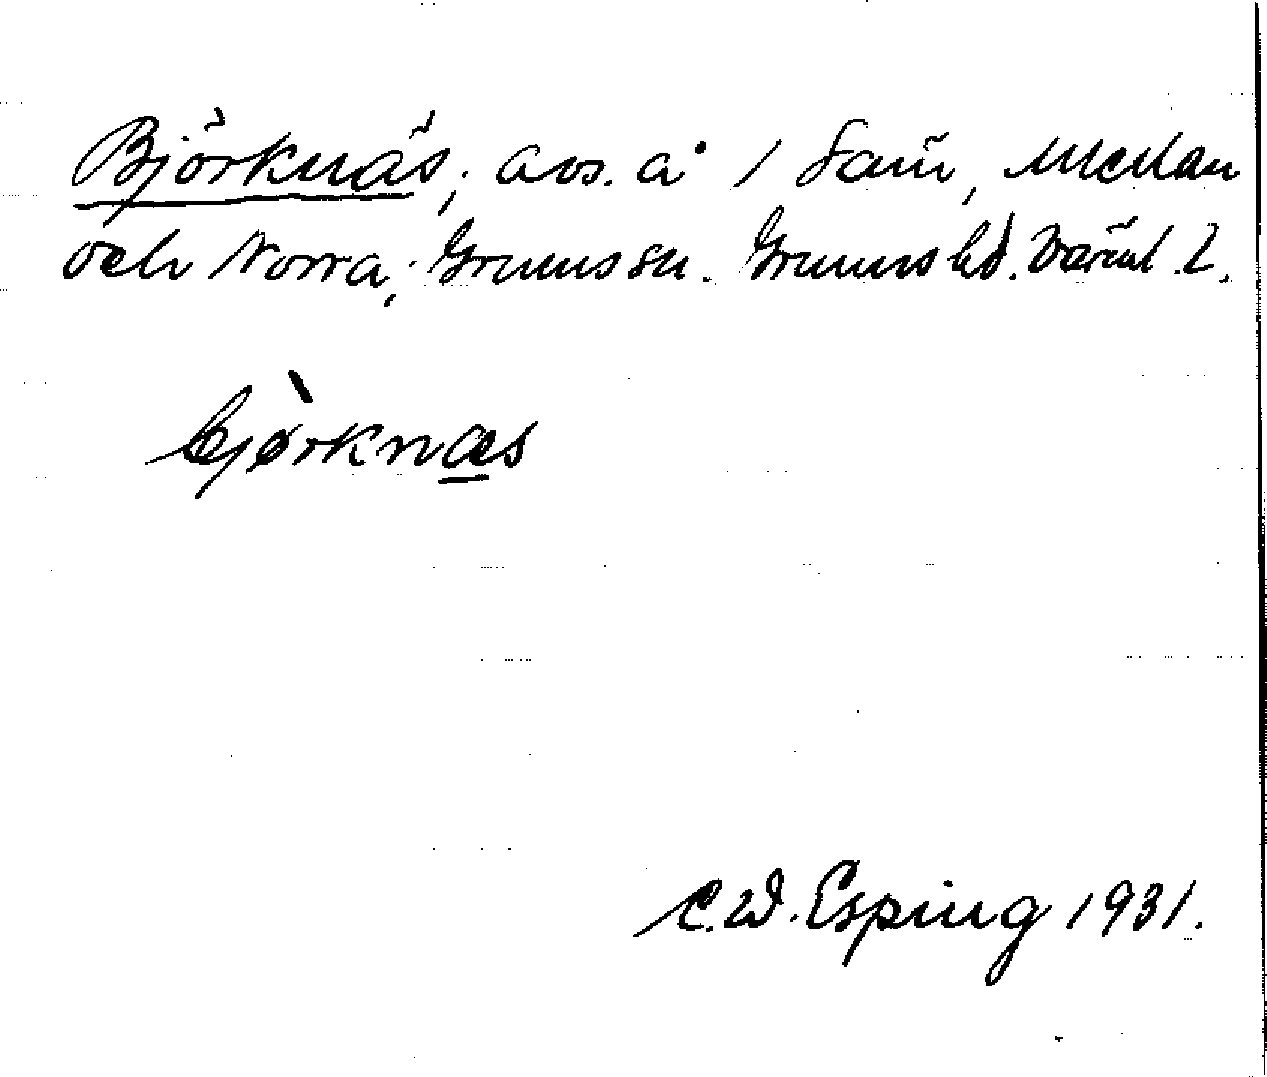 Björknäs, avs. å 1 Sam, Mellan
och Norra, Grums sn. Grums hd. Värml. L.
bjòrknæs
C.W. Esping 1931.